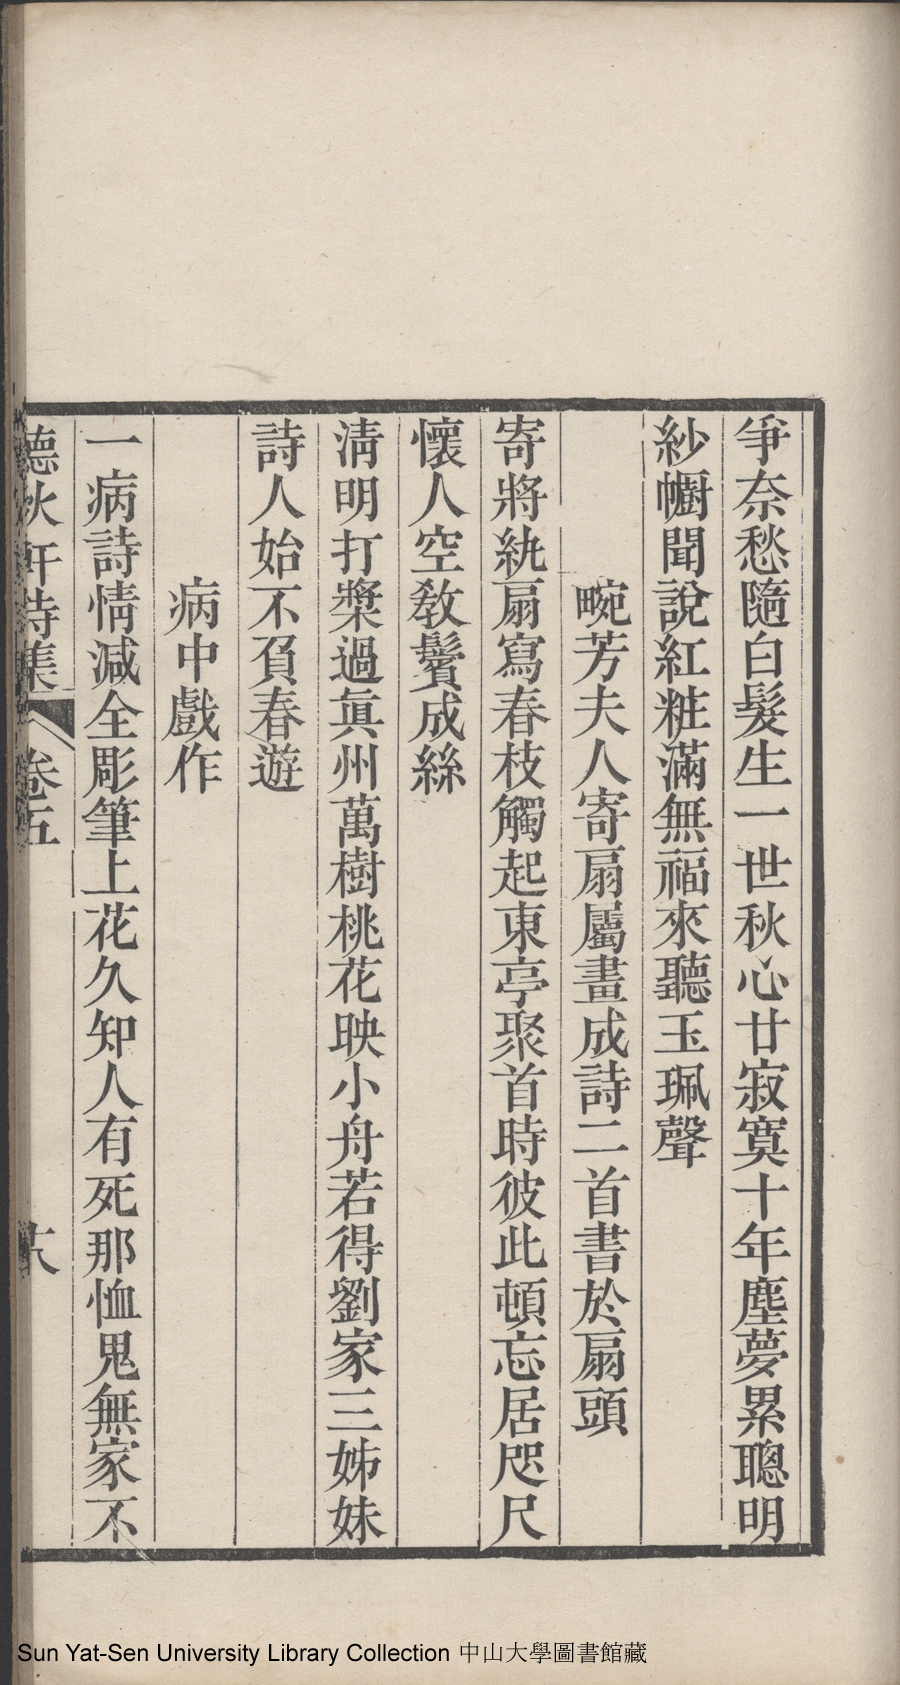 爭奈愁隨白髮生一世秋心甘寂寞十年塵夢累聰明
紗㡡聞說紅粧滿無福來聽玉珮聲
畹芳夫人寄扇屬畫成詩二首書於扇頭
寄將紈扇寫春枝觸起東亭聚首時彼此頓忘居咫尺
懷人空敎鬢成絲
淸明打槳過眞州萬樹桃花映小舟若得劉家三姊妹
詩人始不負春遊
病中戲作
一病詩情減全彫筆上花久知人有死那恤鬼無家不
德秋軒詩集 卷五 十八
Sun Yat-Sen University Library Collection 中山大學圖書館藏